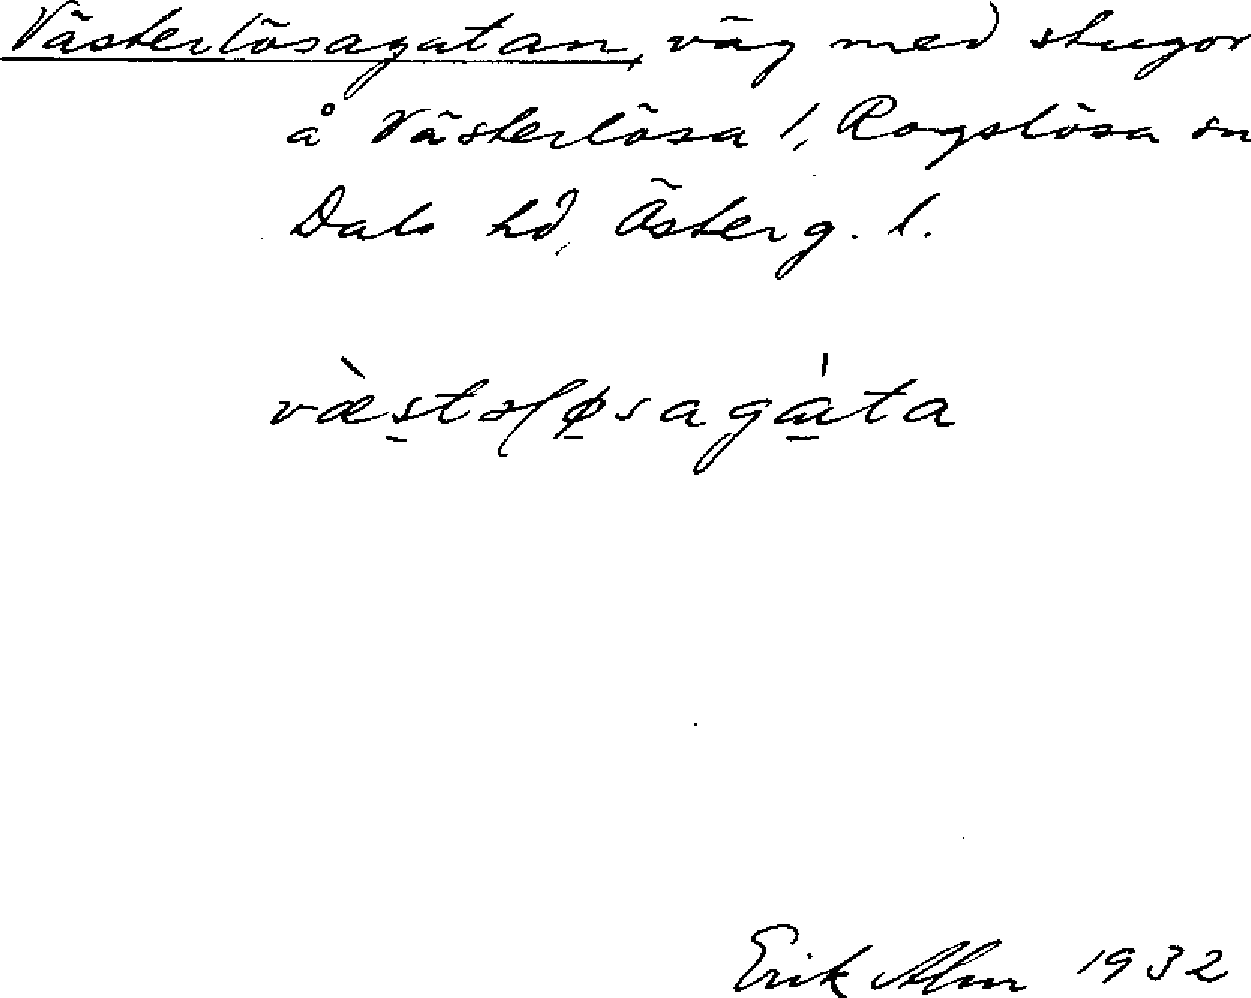 Västerlösagatan, väg med stugor
å Västerlösa l, Rogslösa sn
Dals hd, Österg. l.
væ̀stəɽøsagáta
Erik Alm 1932